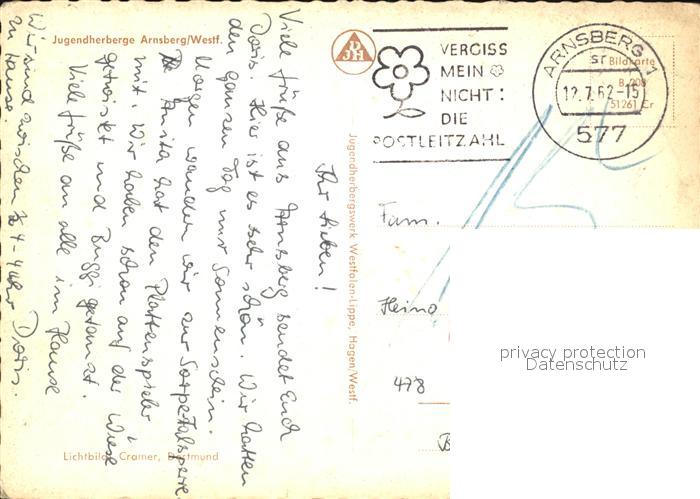 Jugendherberge Arnsberg/Westf.
Ihr Lieben!
Viele Grüße aus Arnsberg sendet Euch
Doris. Hier ist es sehr schön. Wir hatten
den ganzen Tag nur Sonnenschein.
Morgen wandern wir zur Sorpetalsperre.
Anita hat den Plattenspieler
mit. Wir haben schon auf der Wiese
getwistet und Buggi getanzt.
Viele Grüße an alle im Hause
Doris.
Wir sind zwischen 1/2 4 - 4 Uhr
zu Hause.
Lichtbild: Cramer, Dortmund
Jugendherbergswerk Westfalen-Lippe, Hagen/Westf.
DJH
VERGISS
MEIN
NICHT:
DIE
POSTLEITZAHL
ARNSBERG 1
sr
12.7.62-15
577
Bildkarte
B 208
51261 Cr
Fam.
Heino
478
privacy protection
Datenschutz